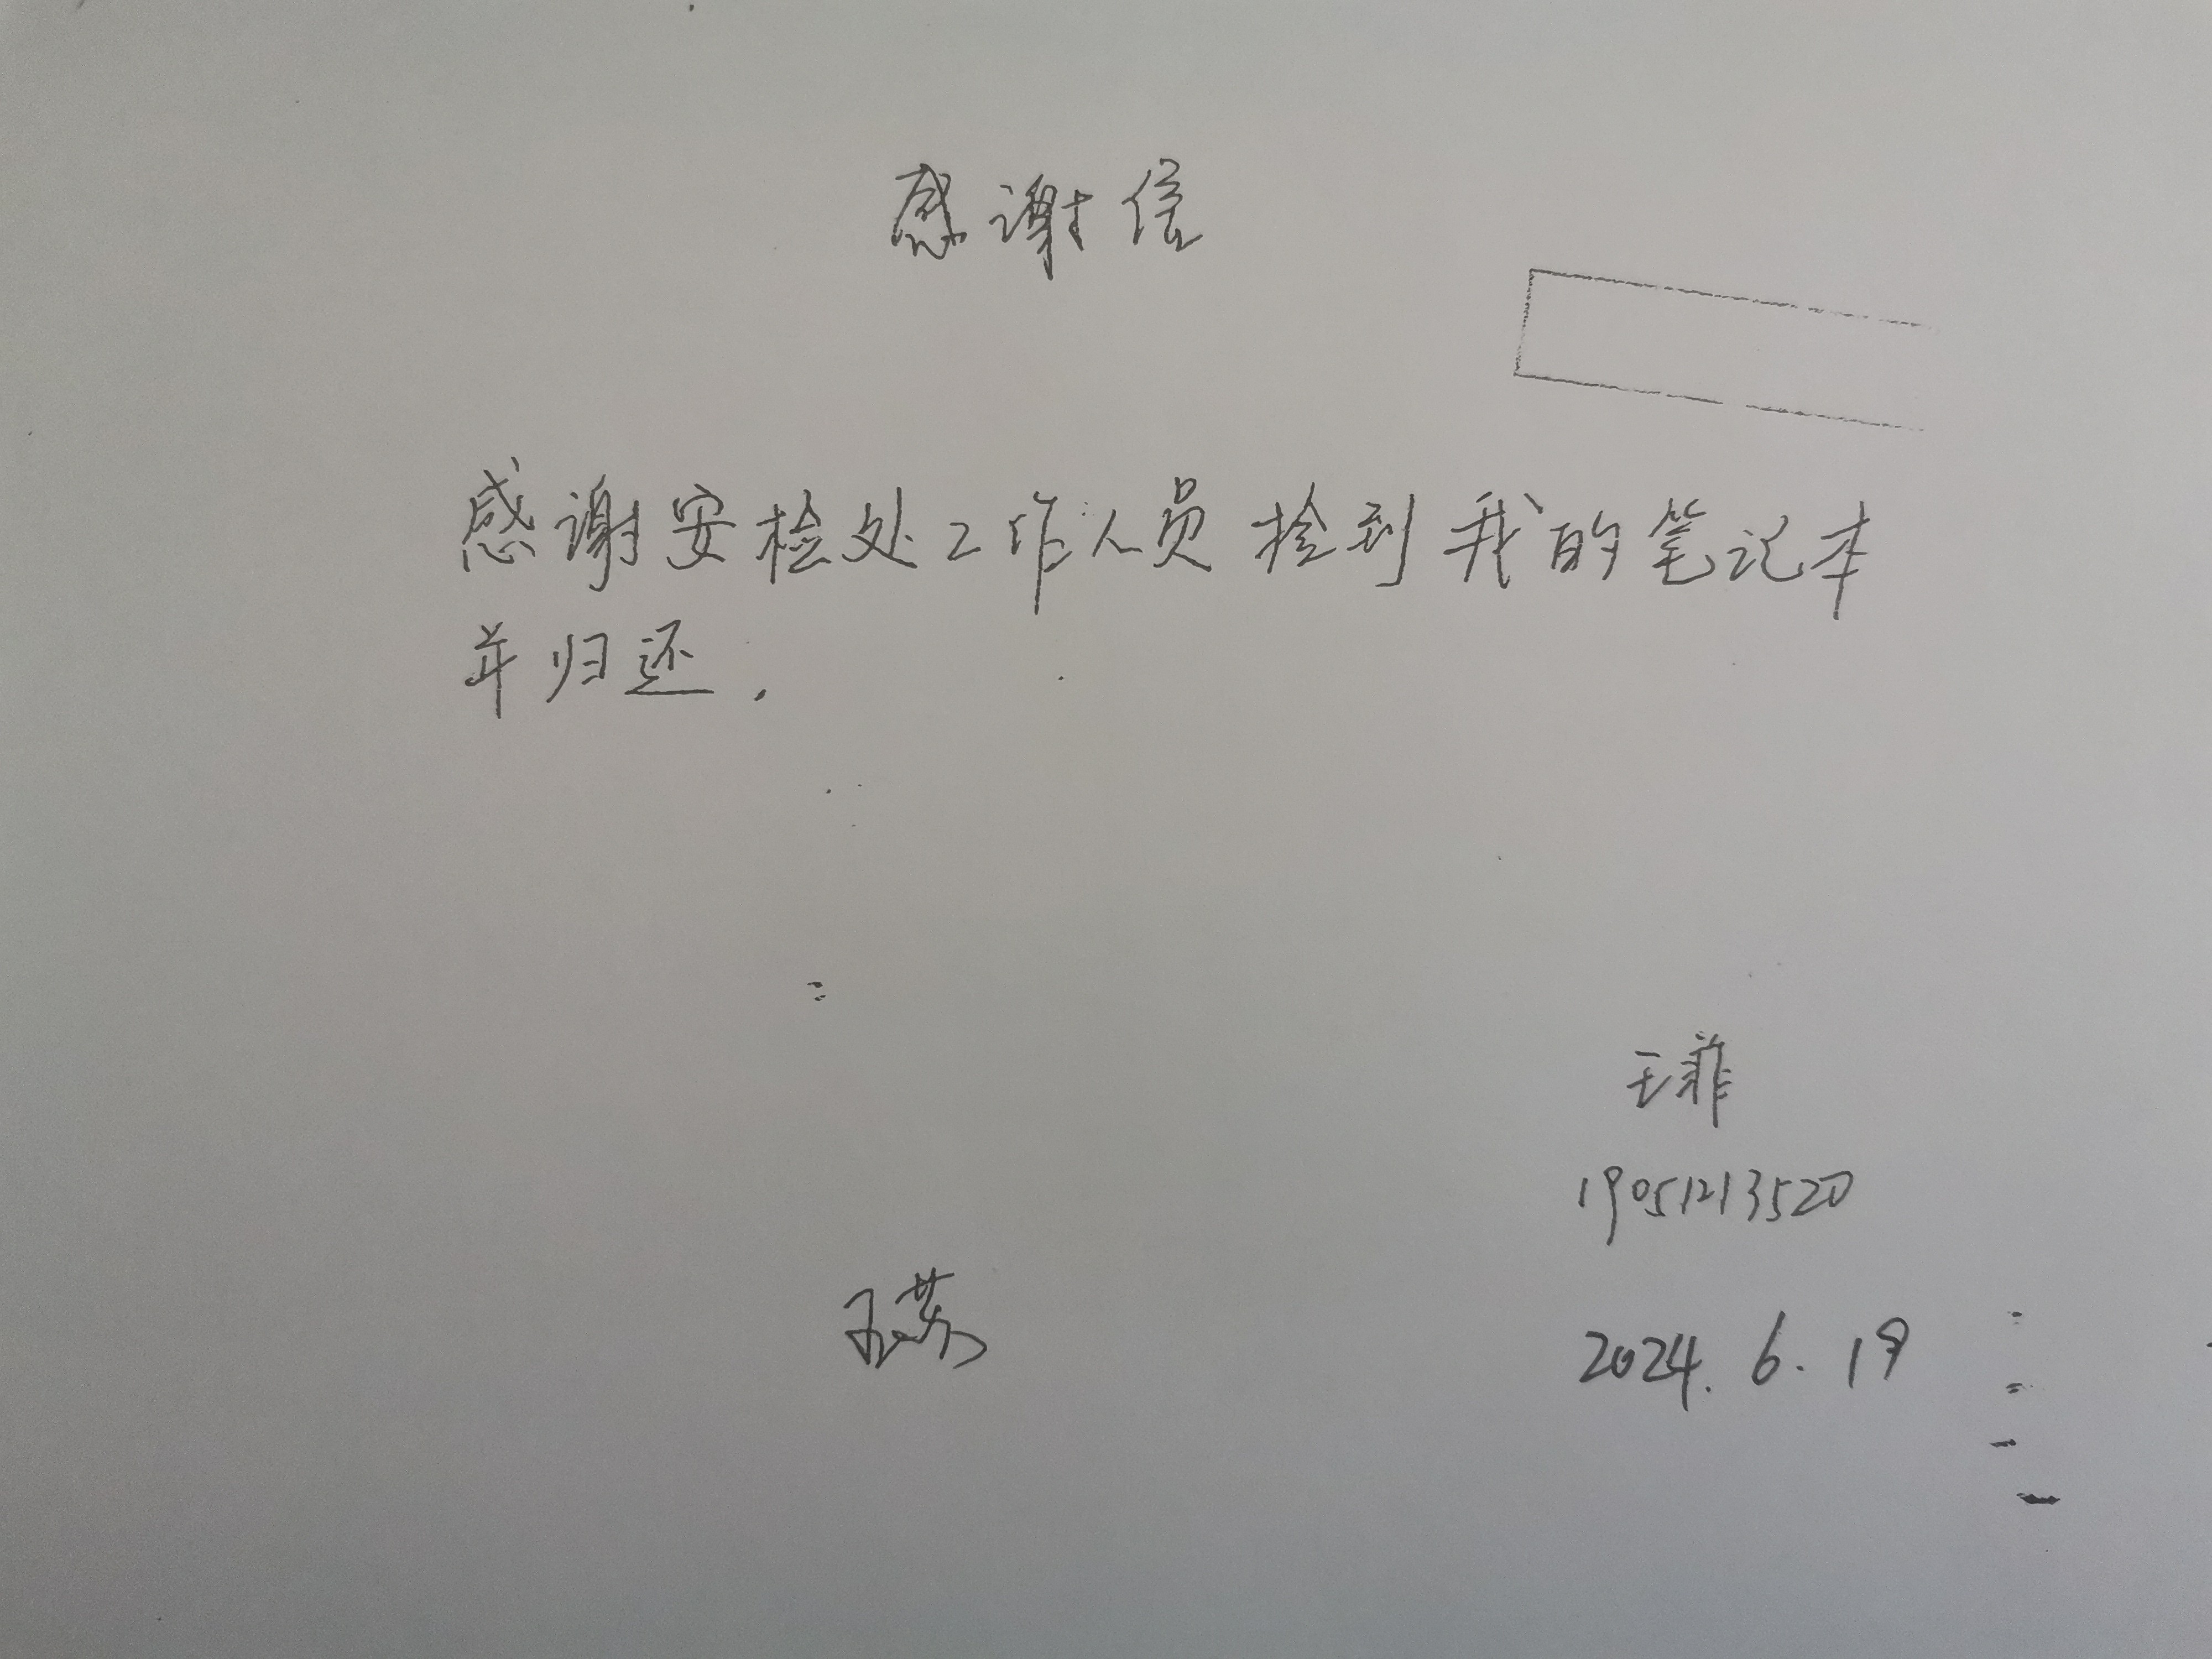 感谢信
感谢安检处工作人员捡到我的笔记本
并归还.
王菲
19051213520
王苏
2024.6.19